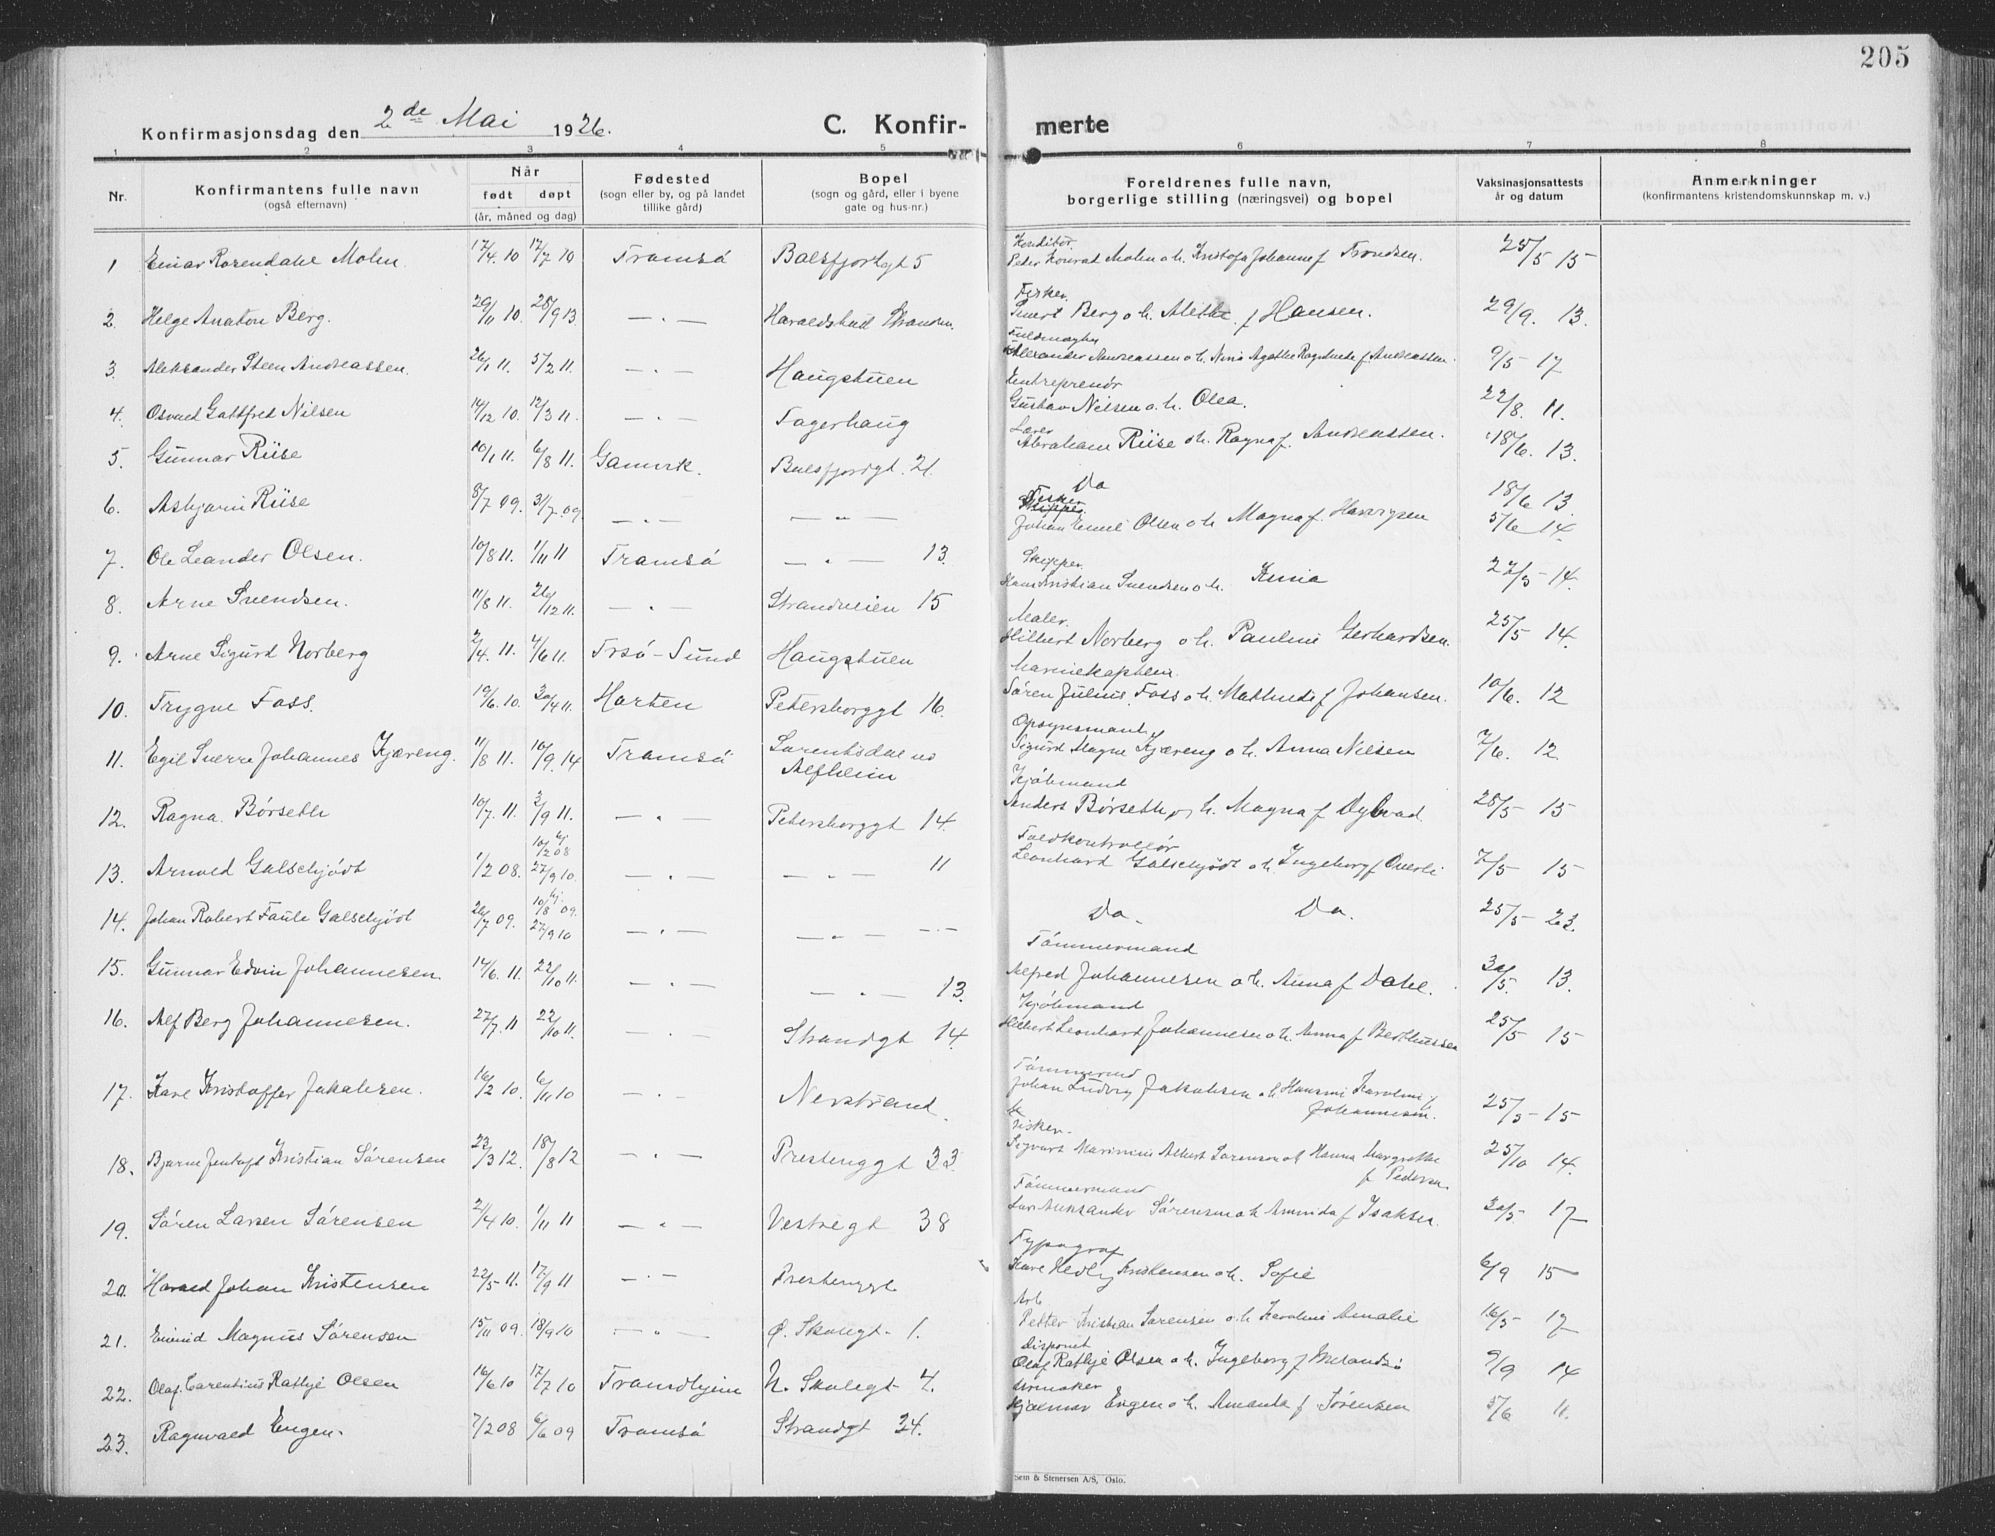 205
Konfirmasjonsdag den 2de Mai 1926.
C. Konfir-
merte
1 2 3 4 5 6 7 8
Nr.
Konfirmantens fulle navn
(også efternavn)
Når
født døpt
(år, måned og dag)
Fødested
(sogn eller by, og på landet
tillike gård)
Bopel
(sogn og gård, eller i byene
gate og hus-nr.)
Foreldrenes fulle navn,
borgerlige stilling (næringsvei) og bopel
Vaksinasjonsattests
år og datum
Anmerkninger
(konfirmantens kristendomskunnskap m. v.)
1 Einar Rosendahl Molin. 17/4.10 17/7 10 Tromsø Balsfjordgt 5
Konditor.
Peder Konrad Molin o h. Kristofa Johanne f Trondsen. 25/5 15
2. Helge Anaton Berg. 29/11 10. 28/9 13. — " — Haraldshvil Stranden.
Fisker.
Berg o h. Alethe f Hansen. 29/9. 13.
3. Aleksander Steen Andreassen. 26/1 11. 5/2 11. — " — Haugstuen
Fuldmægtig
Alexander Andreassen o h. Nina Agathe Ragnhild f. Andreassen. 9/5 - 17
4. Osvald Gottfred Nilsen 14/12 10. 12/3 11. — " — Fagerhaug
Entreprenør
Gustav Nilsen o. h. Olea. 22/8. 11.
5. Gunnar Riise 10/1 11. 6/8 11. Gamvik. Balsfjordgt. 21.
Lærer
Abraham Riise o h. Ragna f. Andreassen. 18/6. 13.
6. Asbjørn Riise 8/7 09. 31/7. 09. — " — — " —
Do 18/6 13.
7. Ole Leander Olsen. 10/8 11. 1/11 11 Tromsø — " — 13.
Fisker
Johan Emil Olsen o h Magna f. Havigsen 5/6 14.
8. Arne Svendsen. 11/8 11. 26/12 11. — " — Strandveien 15
Skipper.
Hans Kristian Svendsen o h. Xenia 22/5 - 14.
9. Arne Sigurd Norberg 2/4. 11. 4/6 11. Trsø-Sund Haugstuen
Maler.
Hilbert Norberg o h. Pauline Gerhardsen. 25/5 14.
10. Trygve Foss. 19/6. 10. 30/4 11. Horten Petersborggt 16.
Marinekaptein.
Søren Julius Foss o h. Mathilde f Johansen. 10/6. 12
11. Egil Sverre Johannes Kjæreng. 11/8 11. 10/9. 14 Tromsø Sorentsdal ved
Alfheim
Opsynsmand
Sigurd Magne Kjæreng o h. Anna Nilsen 7/6. 12
12. Ragna Børseth 10/7. 11. 3/9 11. — " — Petersborggt 14.
Kjøbmand
Anders Børseth o h. Magna f Dybvad. 25/5 - 15
13. Arnold Galschjødt 1/2 08. 10/2 08 hj 27/9 10. — " — — " — 11
Toldkontrollør
Leonhard Galschjødt o h. Ingeborg f Overli 7/5 - 15
14. Johan Robert Faule Galschjødt 26/7 09. 10/8 09. hj 27/9 10 — " — — " — — " —
Do. Do. 25/5 - 23.
15. Gunnar Edvin Johannesen. 14/6. 11. 22/10 11. — " — — " — 13.
Tømmermand
Alfred Johannesen o h. Anna f Dahl. 30/5. 13.
16. Alf Berg Johannesen. 27/7. 11 22/10 11. — " — Strandgt 14.
Kjøbmand
Hilbert Leonhard Johannesen o h. Anna f Berthussen 25/5 - 15
17. Kåre Kristoffer Jakobsen. 16/2 10. 6/11 10 — " — Nerstrand.
Tømmermd
Johan Ludvig Jakobsen o h Hansine Karoline f
Johannesen. 25/5 - 15
18. Bjarne Jentoft Kristian Sørensen 23/3 12. 18/8 12 — " — Prestenggt 33.
Fisker.
Sigvart Marinius Albert Sørensen o h Hanna Margrethe
f Pedersen. 25/10 14.
19. Søren Larsen Sørensen 2/4 10. 1/11 11 — " — Vestregt 38
Tømmermand
Lars Aleksander Sørensen o h Amanda f Isaksen. 30/5 - 17
20. Harald Johan Kristensen 22/5 11. 17/9 11 — " — Prestenggt
Typograf
Kåre Hedley Kristensen o h. Sofie 6/9 15
21. Eivind Magnus Sørensen 15/11 09. 18/9 10 — " — Ø. Skolegt - 1.
Arb
Petter Kristian Sørensen o. h Karoline Amalie 16/5 - 17
22. Olaf Carentius Rathje Olsen 16/6 10 17/7 10 Trondhjem N. Skolegt - 4.
Disponent
Olaf Rathje Olsen o h. Ingeborg f 9/9 14
23. Ragnvald Engen. 7/2 08 6/6 09 Tromsø Strandgt 34.
Urmaker
Hjalmar Engen o h. Amanda f Sørensen 5/6 11.
Sem & Stenersen A/S, Oslo.